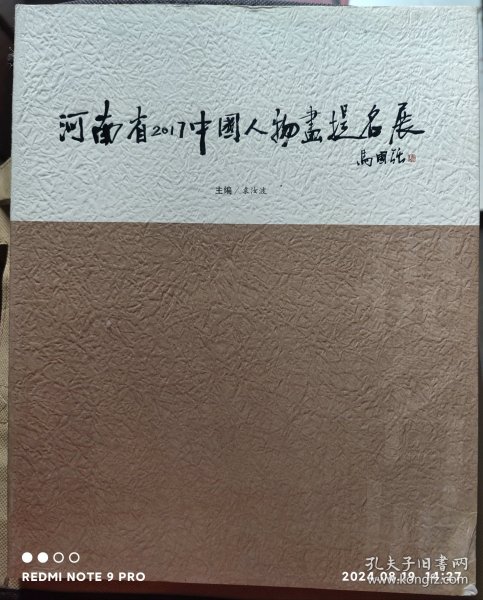 河南省2017中國人物畫提名展
馬國強
主编/袁汝波
REDMI NOTE 9 PRO
2024.08.19 14:27
孔夫子旧书网
www.kongfz.com